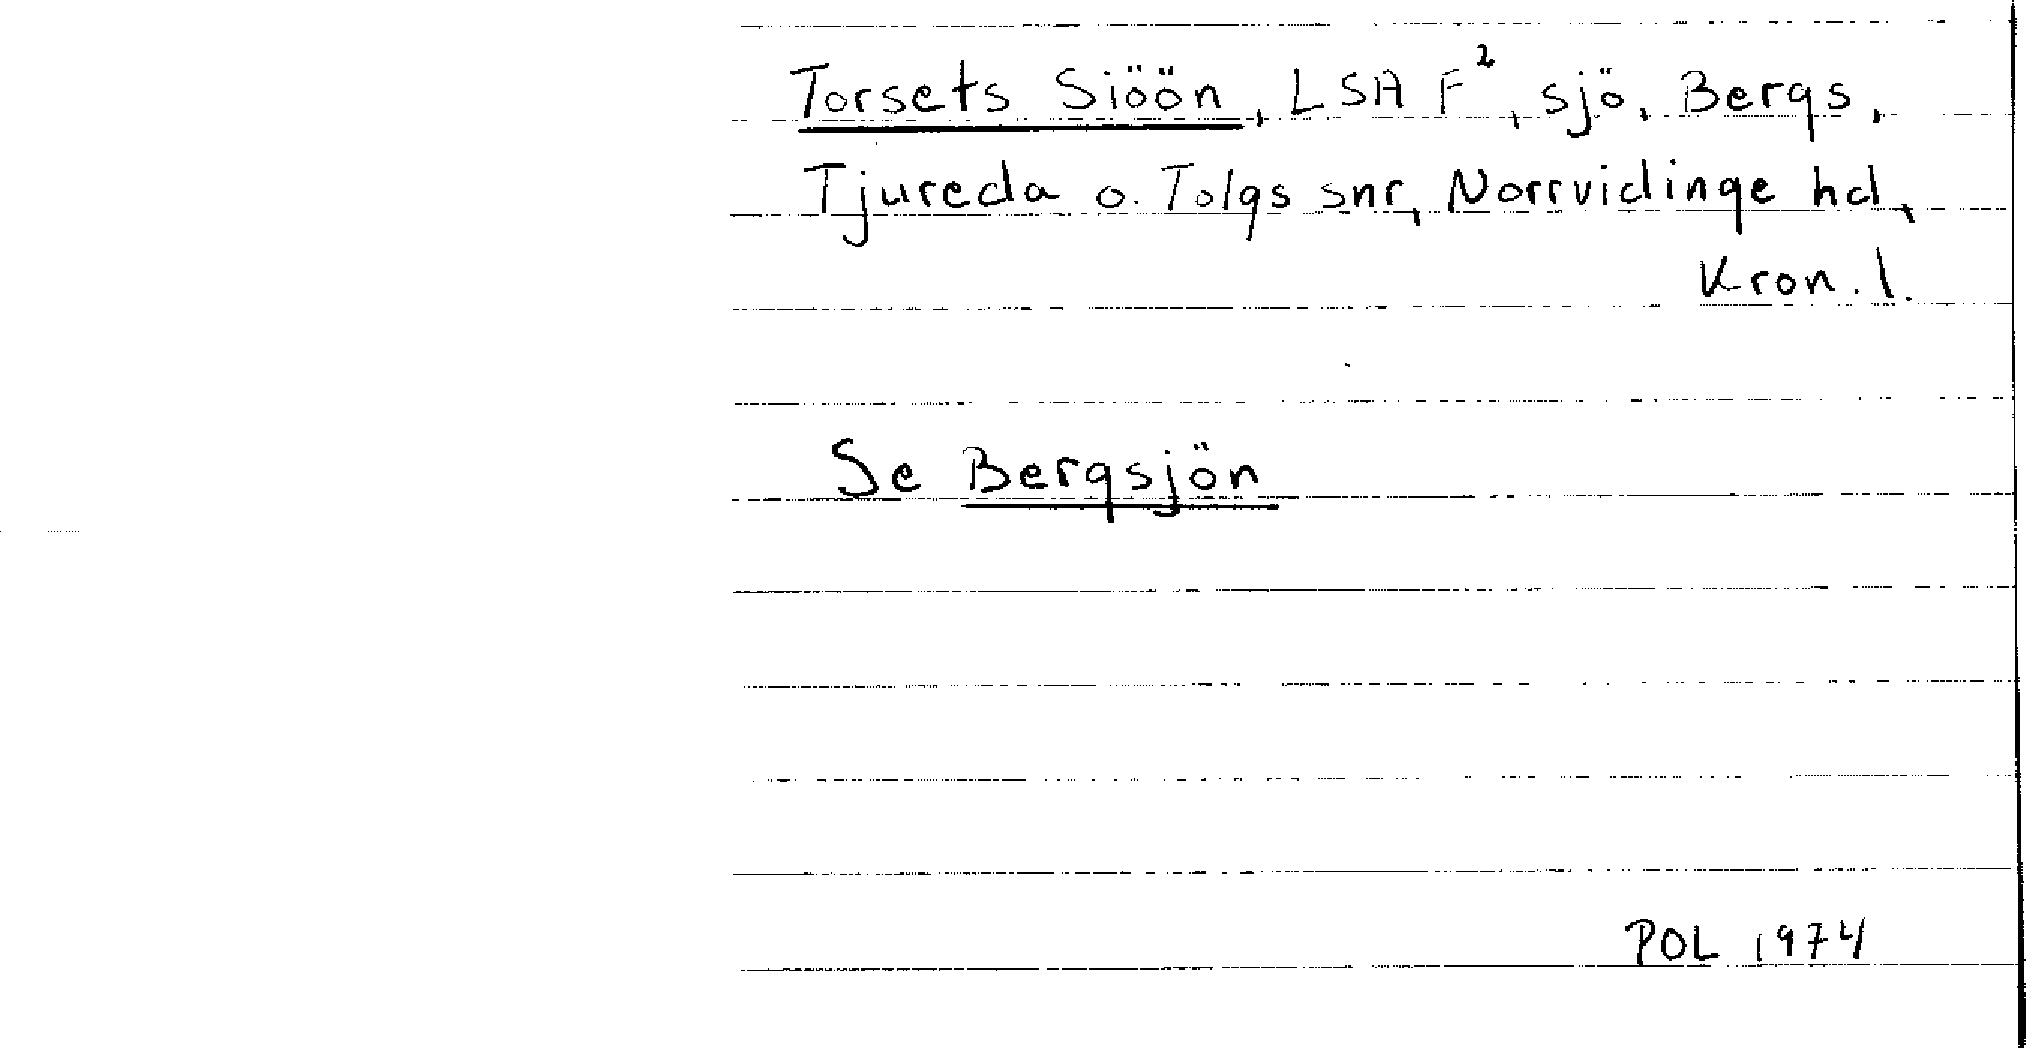 Torsets Siöön, LSA F², sjö, Bergs,
Tjureda o. Tolgs snr, Norrvidinge hd,
Kron. l.
Se Bergsjön
POL 1974